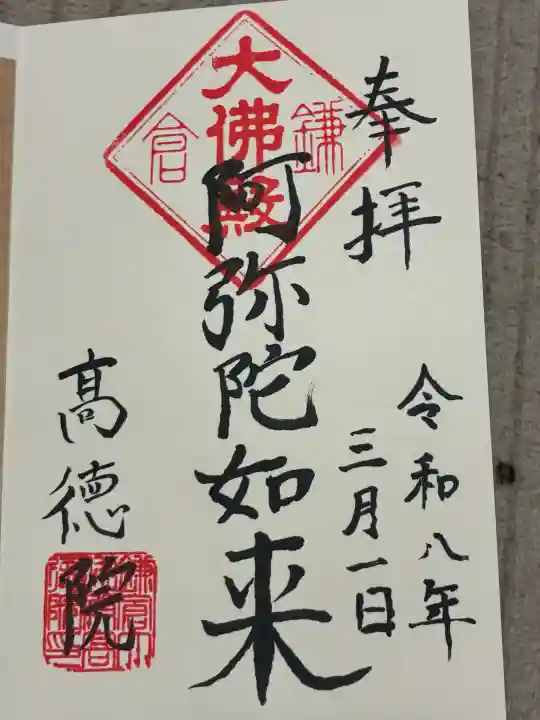 奉拝
令和八年
三月一日
大佛殿
鎌倉
阿弥陀如来
高徳院